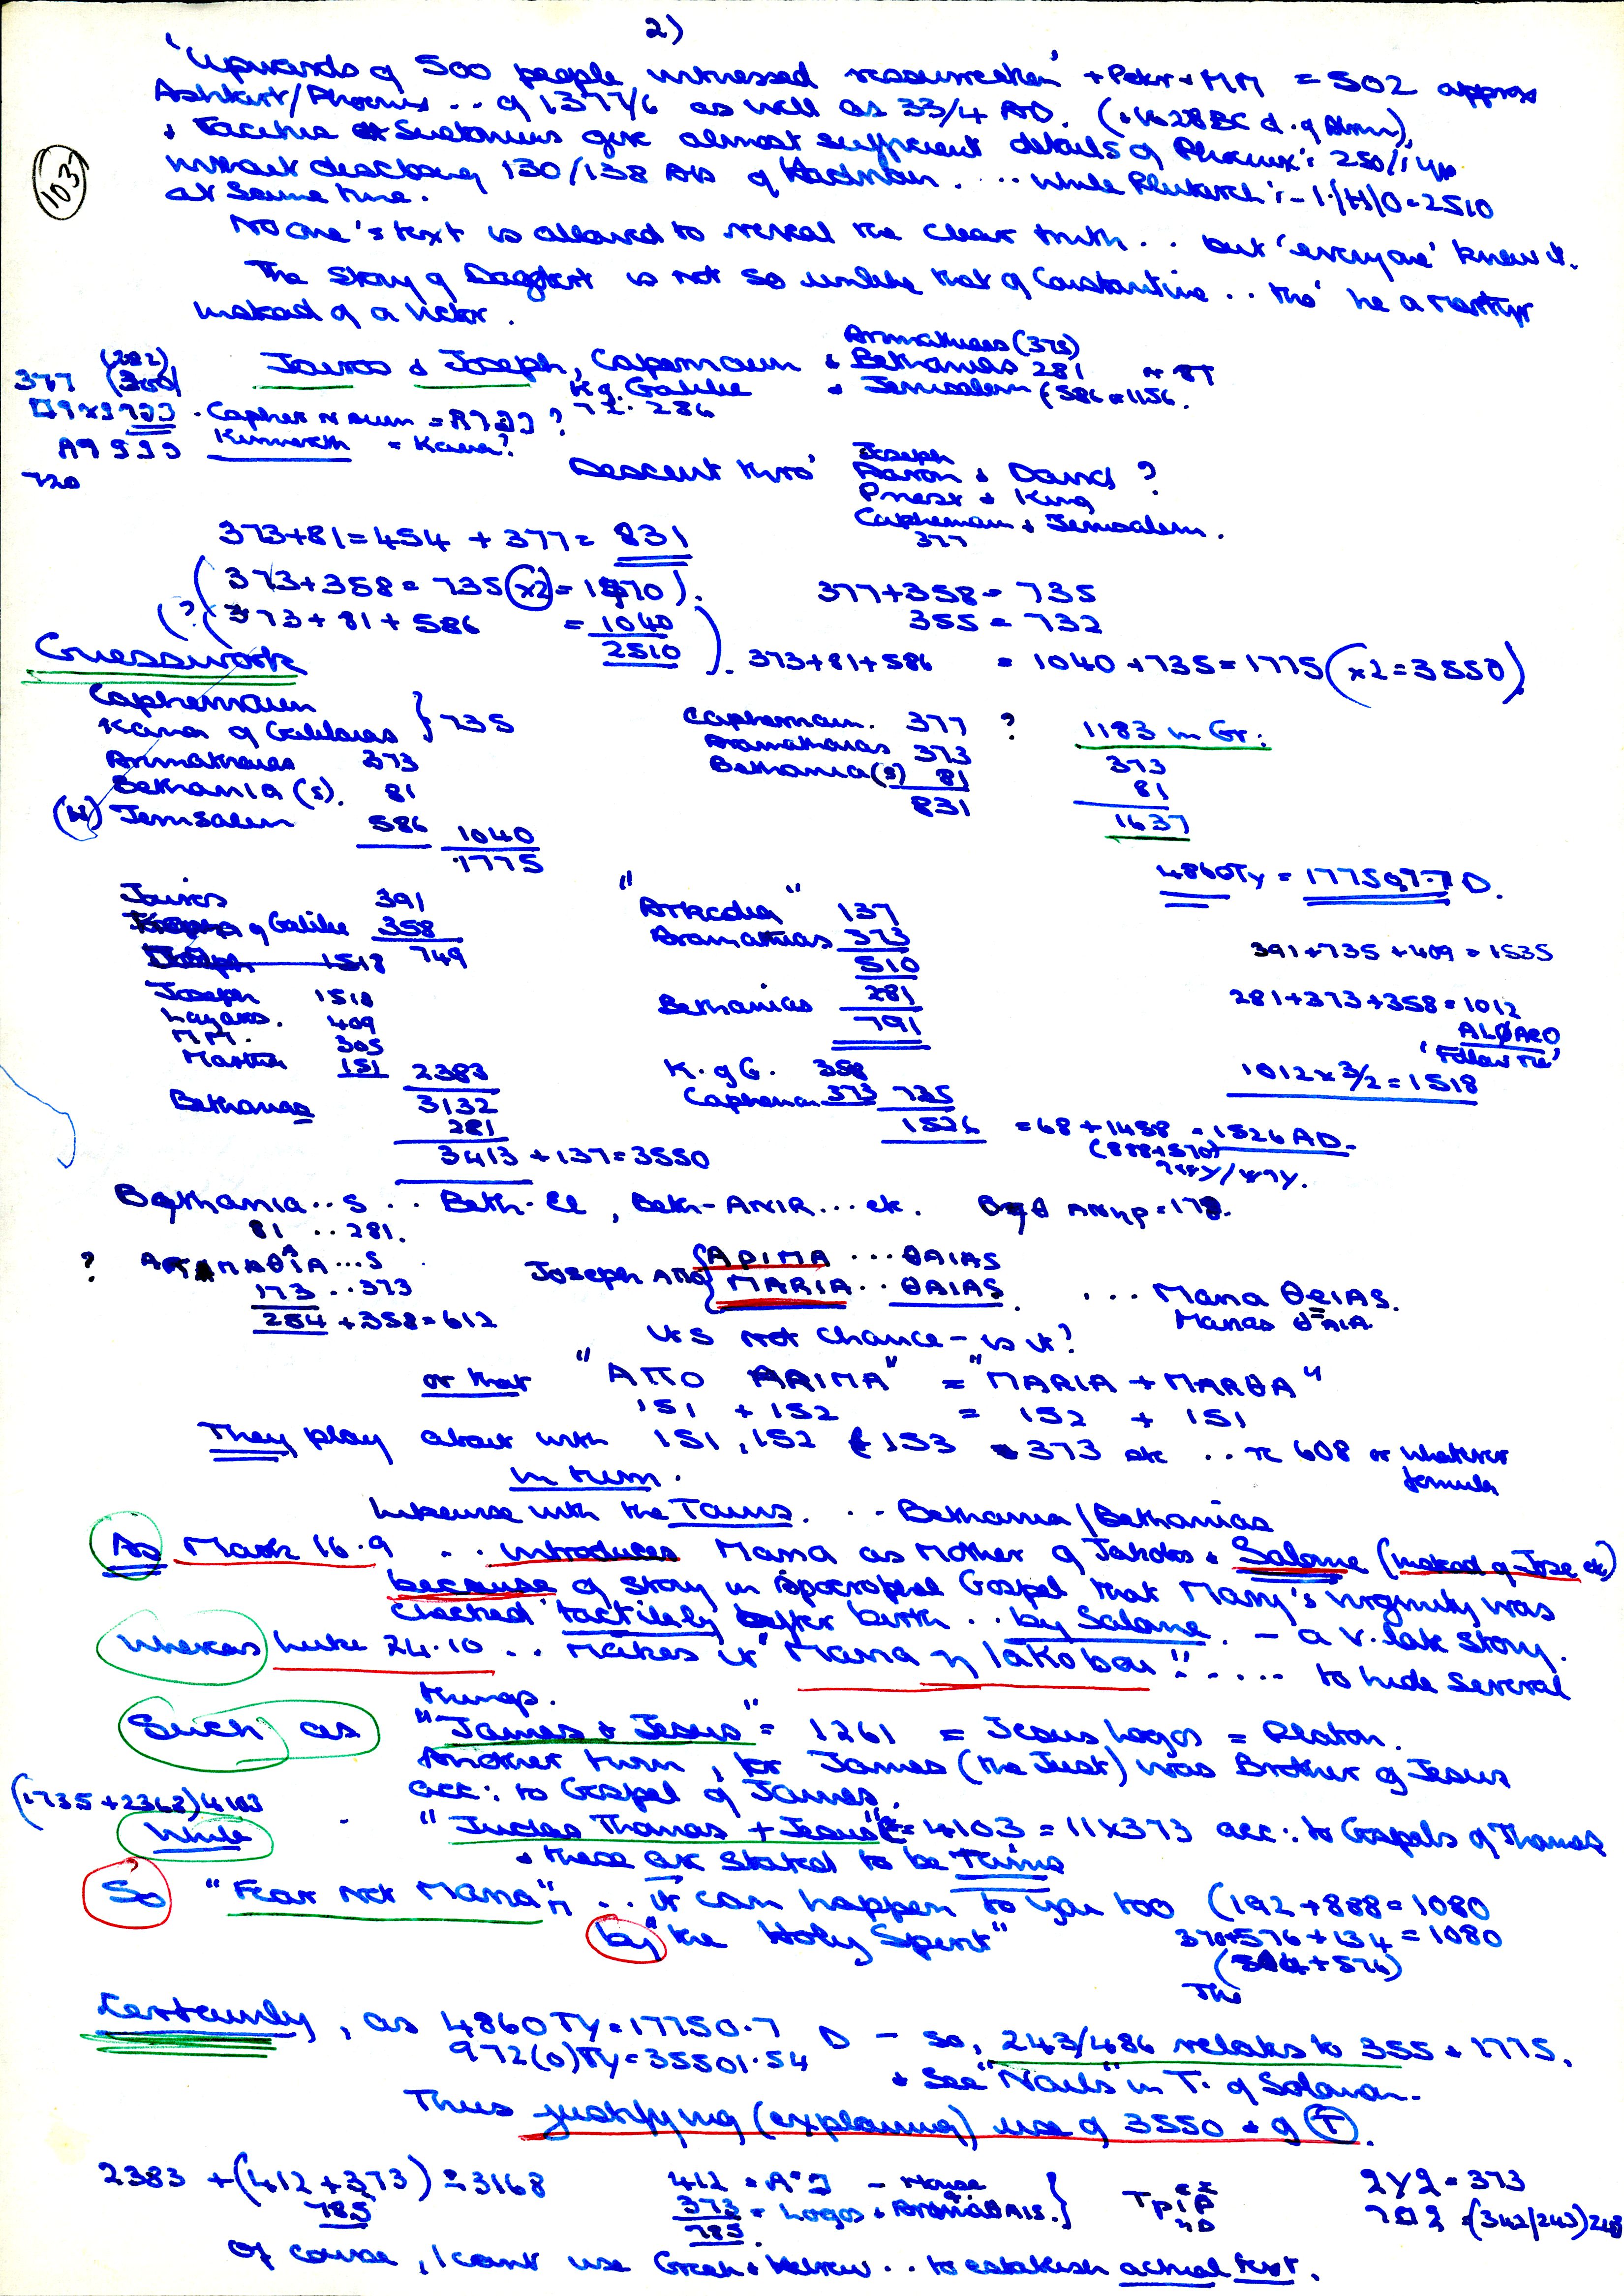 2)
'Upwards of 500 people witnessed resurrection' + Peter + MM = 502 approx
Ashkert/Phoenix .. of 1377/6 as well as 33/4 AD.
+ Tacitus Suetonius give almost sufficient details of Phoenix: 250/1 yrs
without disclosing 130/138 AD of Hadrian ... while Plutarch :- 1/(H)/0 = 2510
at same time.
1037
No one's text is allowed to reveal the clear truth .. but 'everyone' knew it.
The story of is not so unlike that of Constantine .. tho' he a martyr
instead of a victor.
Arimathaias (373)
(282)
377 (350)
Jairos & Joseph, Capernaum & Bethanias 281 or 81
K of Galilee & Jerusalem (586 = 1156.
72. 286
Capher Naum = ?
Kinnereth = Kana?
720
Joseph
Descent thro' Aaron & David ?
Priest + King
Caphernaum & Jerusalem.
377
373+81=454 + 377 = 831
(373+358 = 735 (x2) = 1470). 377+358 = 735
(?(373+81+586 = 1040 355 = 732
2510). 373+81+586 = 1040 + 735 = 1775 (x2 = 3550)
Guesswork
Caphernaum
Kana of Galilaias } 735
Arimathaias 373
Bethania (s). 81
(H) Jerusalem 586 1040
1775
Caphernaum. 377 ?
Arimathaias 373
Bethania(s) 81
831
1183 in Gr:
373
81
1637
4860Ty = 17750,7.7 D.
Jairos 391
of Galilee 358
749
Joseph 1518
Joseph 1518
Lazaros. 409
MM. 305
Martha 151 2383
3132
Bethanias 281
3413 + 137 = 3550
"Arkadia" 137
Arimathias 373
510
Bethanias 281
791
K. of G. 358
Capherna 373 735
1526 = 68 + 1458 = 1526 AD.
(888+570)
391+735+409 = 1535
281+373+358 = 1012
'Follow me'
1012 x 3/2 = 1518
Bethania .. s .. Beth-El, Beth-ANIR ... etc.
81 .. 281.
? ΑΡΙΜΑΘΙΑ ... S
173 .. 373
254 + 358 = 612
Joseph ΑΠΟ { ΑΡΙΜΑ ... ΘΑΙΑS
{ MARIA .. ΘΑΙΑS ... Maria ΘΕΙΑS.
Marias ΘΕΙΑ.
It's not chance - is it?
or that "ΑΠΟ ΑRΙΜΑ" = "MARIA + MARΘA"
151 + 152 = 152 + 151
They play about with 151, 152 & 153 373 etc .. π 608 or whatever
in turn. formula
Likewise with the Towns. .. Bethania/Bethanias
As Mark 16.9 .. introduces Maria as Mother of Jakobos & Salome (instead of Jose etc)
because of story in apocryphal Gospel that Mary's virginity was
checked 'tactilely' after birth .. by Salome. - a v. late story.
Whereas Luke 24.10 .. makes it "Maria η Iakobou" .... to hide several
things.
Such as "James & Jesus" = 1261 = Jesus Logos = Platon.
Another twin, for James (the Just) was Brother of Jesus
acc: to Gospel of James.
(1735+2368) 4103
While "Judas Thomas + Jesus" = 4103 = 11x373 acc: to Gospels of Thomas
& these are stated to be Twins
So "Fear not Maria" .. it can happen to you too (192+888 = 1080
by "the Holy Spirit" 370+576+134 = 1080
(504+576)
The
Certainly, as 4860 TY = 17750.7 D - so, 243/486 relates to 355 & 1775.
972(0)TY = 35501.54 & See "Nails" in T. of Solomon.
Thus justifying (explaining) use of 3550 & of (T).
2383 + (412+373) = 3168
785
412 = - House
373 = Logos + }
785
= 373
= (342/243) 248
Of course, I can't use Greek + Hebrew .. to establish actual text.